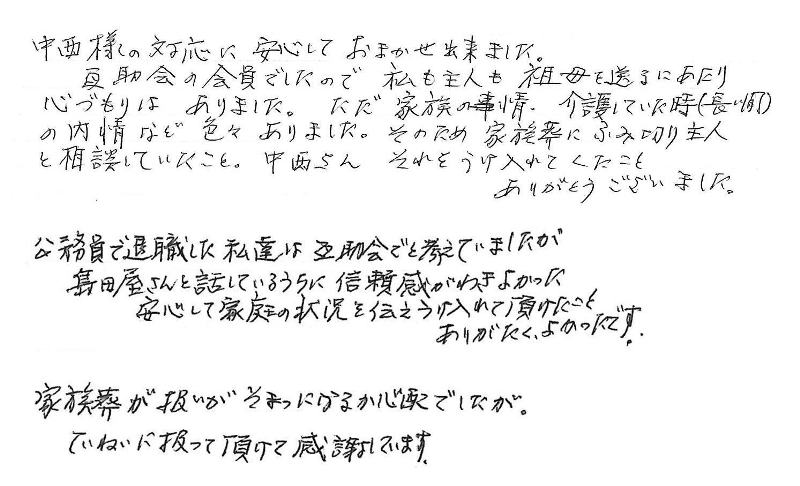 中西様の対応に安心しておまかせ出来ました。
互助会の会員でしたので私も主人も祖母を送るにあたり
心づもりはありました。ただ家族の事情、介護していた時(長い間)
の内情など色々ありました。そのため家族葬にふみ切り主人
と相談していたこと。中西さんそれをうけ入れてくたこと
ありがとうございました。
公務員で退職した私達は互助会でと考えていましたが
島田屋さんと話しているうちに信頼感がわきよかった
安心して家庭の状況を伝えうけ入れて頂けたこと
ありがたく、よかったです。
家族葬が扱いがそまつになるか心配でしたが。
ていねいに扱って頂けて感謝しています。